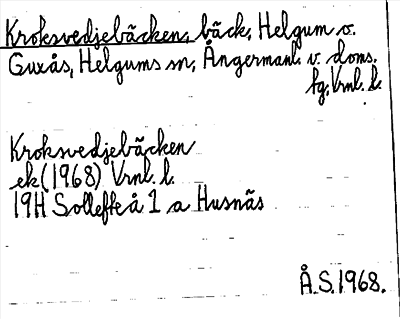 Kroksvedjebäcken, bäck, Helgum o.
Guxås, Helgums sn, Ångermanl. v. doms.
fg, Vrnl. l.
Kroksvedjebäcken
ek (1968) Vrnl. l.
19H Sollefteå 1 a Husnäs
Å.S. 1968.